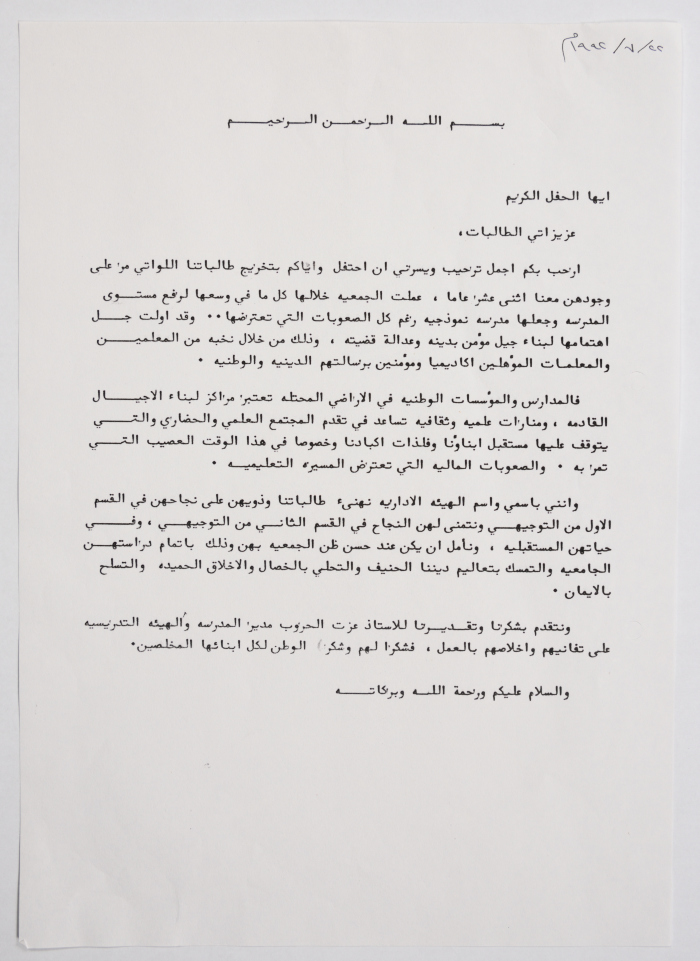 ٢٢/٧/١٩٩٢م
بســـم اللـــه الـرحمـــن الـرحيـــم
ايها الحفل الكريم
عزيزاتي الطالبات،
ارحب بكم اجمل ترحيب ويسرني ان احتفل واياكم بتخريج طالباتنا اللواتي مر على
وجودهن معنا اثنى عشر عاما ، عملت الجمعيه خلالها كل ما في وسعها لرفع مستــوى
المدرسه وجعلها مدرسه نموذجيه رغم كل الصعوبات التي تعترضها٠٠ وقد اولت جــل
اهتمامها لبناء جيل مؤمن بدينه وعدالة قضيته ، وذلك من خلال نخبه من المعلميــن
والمعلمات المؤهلين اكاديميا ومؤمنين برسالتهم الدينيه والوطنيه ٠
فالمدارس والمؤسسات الوطنيه في الاراضي المحتله تعتبر مراكز لبناء الاجيــال
القادمه ، ومنارات علميه وثقافيه تساعد في تقدم المجتمع العلمي والحضاري والتــي
يتوقف عليها مستقبل ابناؤنا وفلذات اكبادنا وخصوصا في هذا الوقت العصيب التــي
تمر به ٠ والصعوبات الماليه التي تعترض المسيره التعليميــه ٠
وانني باسمي واسم الهيئه الاداريه نهنىء طالباتنا وذويهن على نجاحهن في القسم
الاول من التوجيهــي ونتمنى لهن النجاح في القسم الثانــي من التوجيهــي ، وفــي
حياتهن المستقبليه ، ونأمل ان يكن عند حسن ظن الجمعيه بهن وذلك باتمام دراستهــن
الجامعيه والتمسك بتعاليم ديننا الحنيف والتحلي بالخصال والاخلاق الحميده والتسلح
بالايمان ٠
ونتقدم بشكرنا وتقديــرنا للاستاذ عزت الحروب مدير المدرسه والهيئه التدريسيه
على تفانيهم واخلاصهم بالعمل ، فشكرا لهم وشكر الوطن لكل ابنائها المخلصين٠
والسلام عليكم ورحمة اللــه وبركاتــه